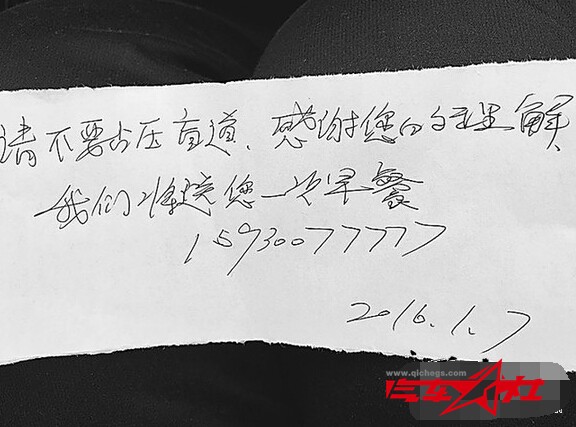 请不要占压盲道、感谢您的理解、
我们将送您一次早餐
15930077777
2016.1.7
www.qichogs.com